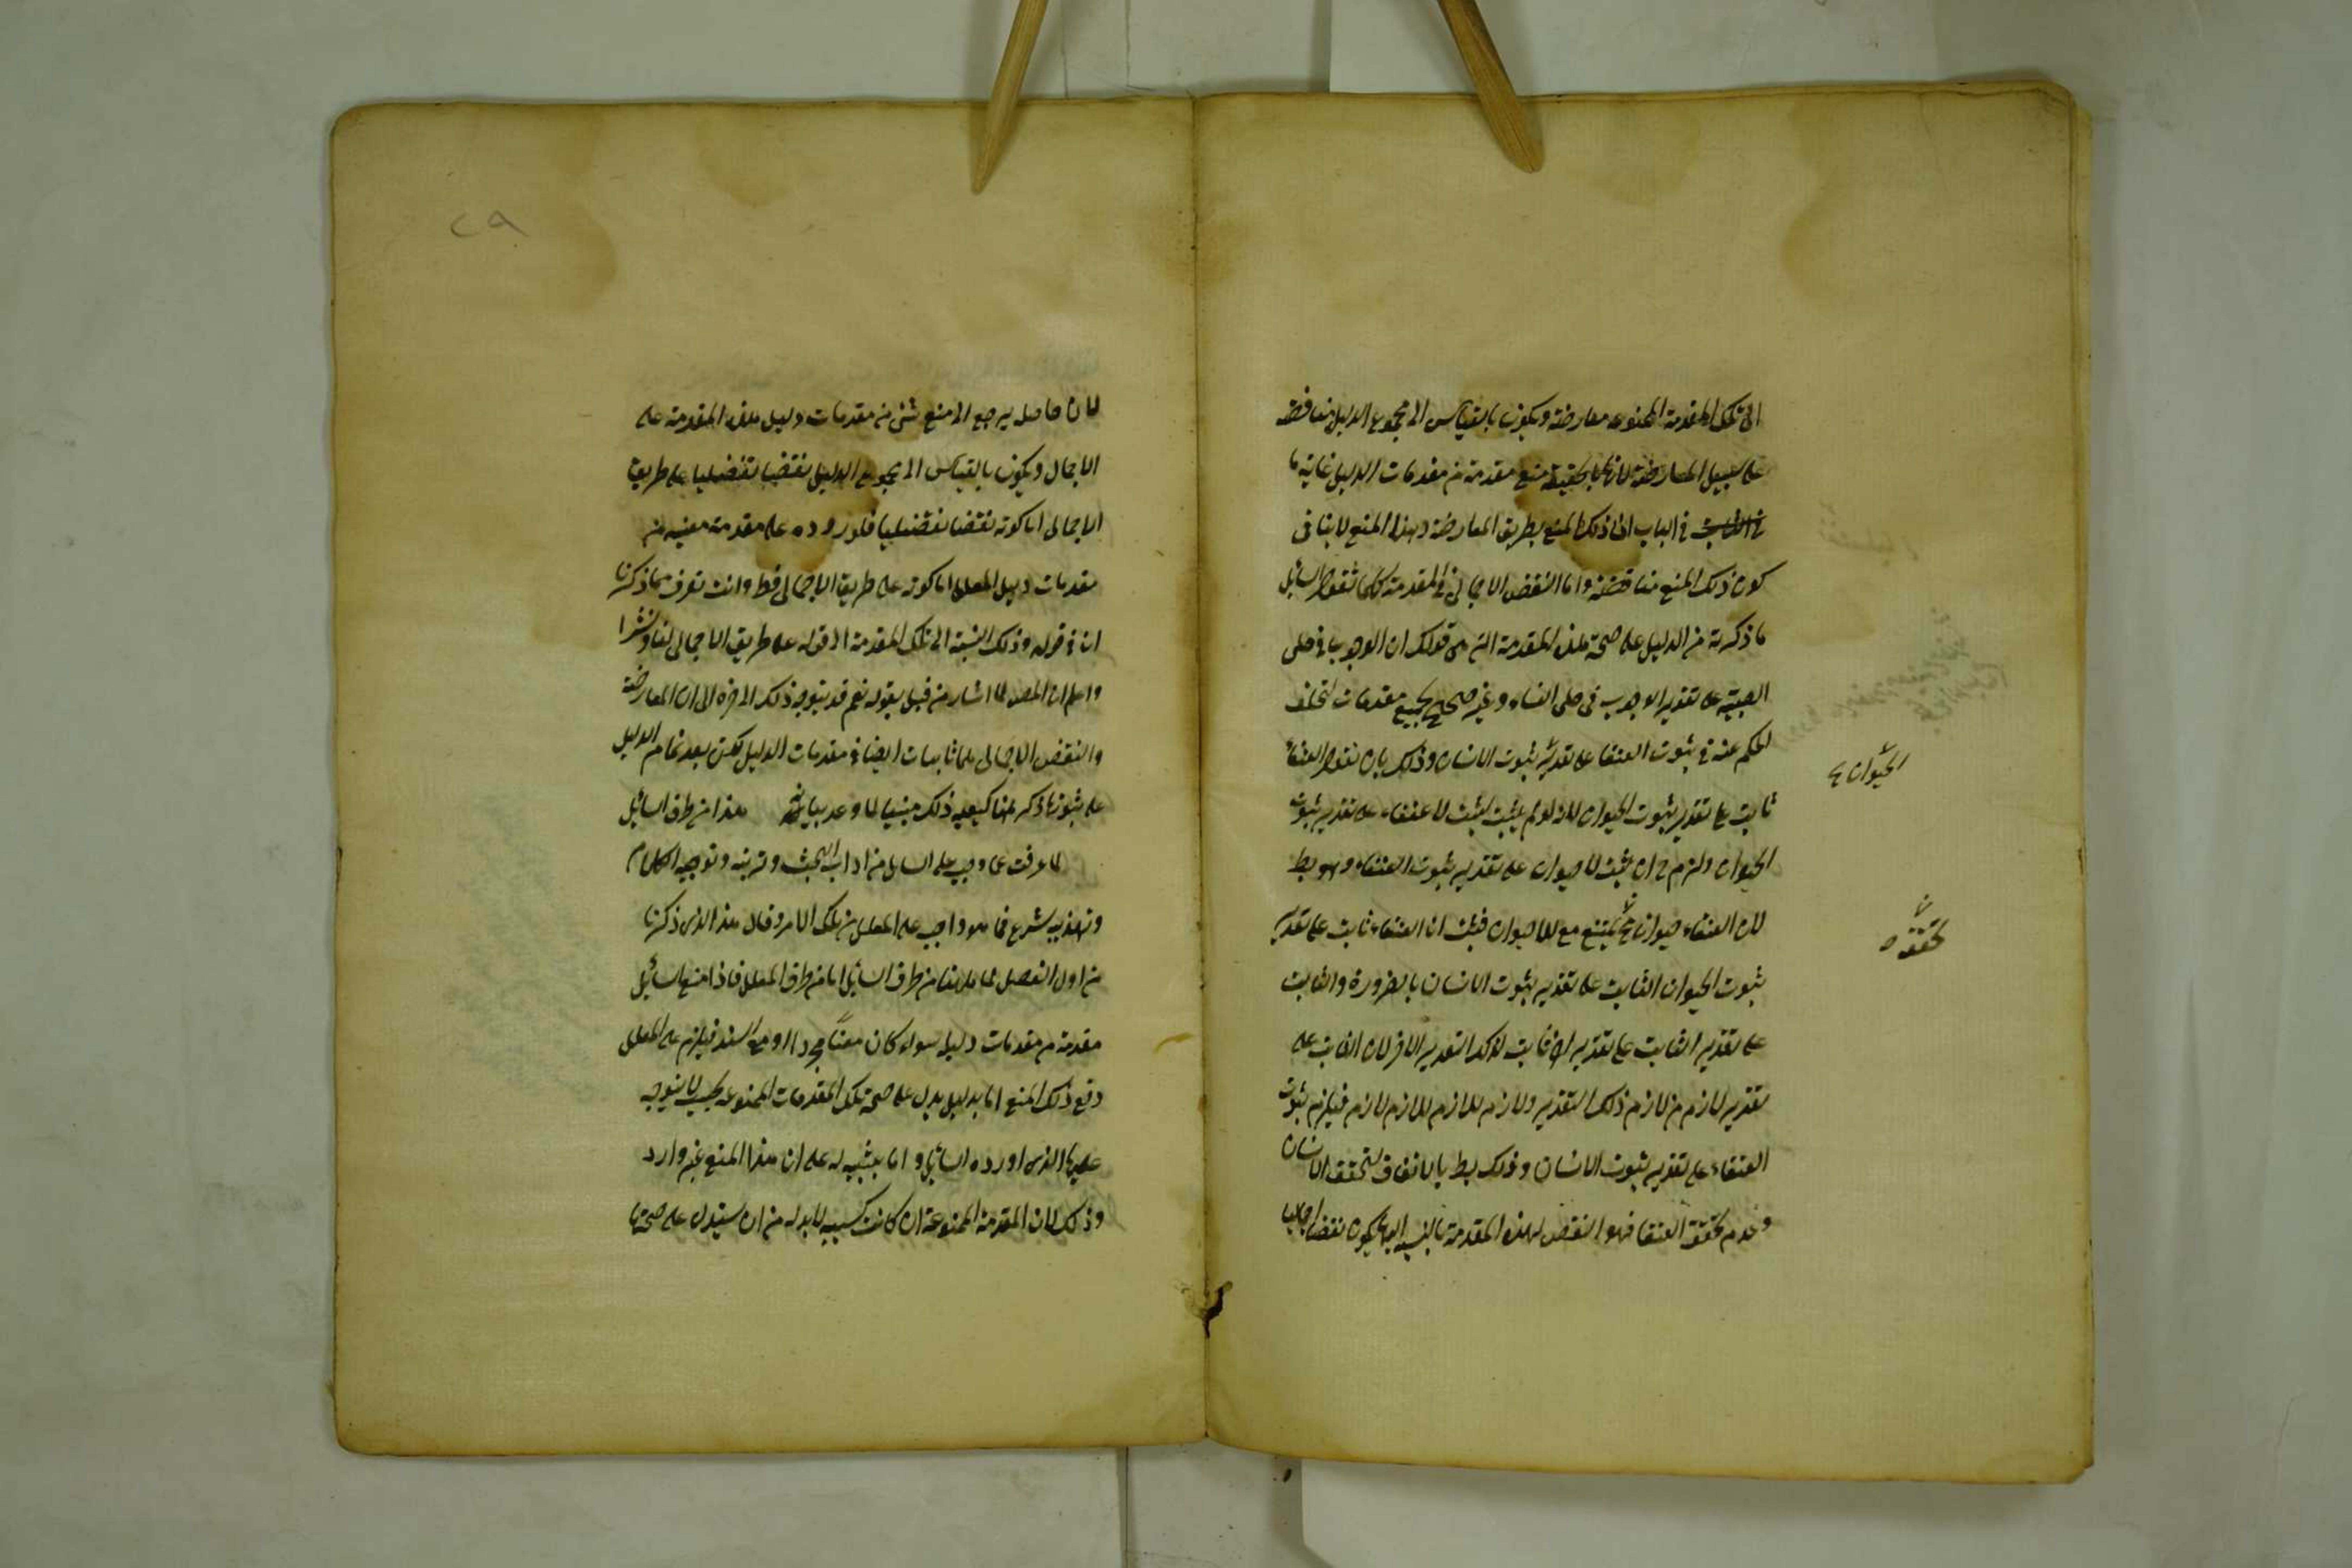 الى تلك المقدمة الممنوعه معارضة ويكون بالقياس الى مجموع الدليل مناقضة
على سبيل المعارضة لانها بالحقيقة منع مقدمة من مقدمات الدليل غاية ما
فى الباب ان ذلك المنع بطريق المعارضة وهذا المنع لا ينافى
كون ذلك المنع مناقضة واما النقض الاجمالى فى المقدمة فكما نقول السائل
ما ذكرته من الدليل على صحة هذه المقدمة التى هى قولك ان الوجوب فى حلى
الصبية على تقدير الوجوب فى حلى النساء وغير صحيح بجميع مقدماته لتخلف
الحكم عنه فى ثبوت العنقا على تقدير ثبوت الانسان وذلك بان نقول العنقاء
ثابت على تقدير ثبوت الحيوان لانه لو لم يثبت لثبت لا عنقاء على تقدير ثبوت
الحيوان ولزم ح ان يثبت لا حيوان على تقدير ثبوت العنقاء وهو بط
لان العنقاء حيوان يمتنع مع اللاحيوان فيثبت ان العنقاء ثابت على تقدير
ثبوت الحيوان الثابت على تقدير ثبوت الانسان بالضرورة والثابت
على تقدير الثابت على تقدير اخر ثابت لذلك التقدير الاخر لان الثابت على
تقدير لازم من لازم ذلك التقدير ولازم اللازم لازم فيلزم ثبوت
العنقاء على تقدير ثبوت الانسان وذلك بط بالاتفاق لتحقق الانسان
وعدم تحقق العنقا فهو النقض لهذه المقدمة بالنسبة اليها يكون نقضا اجماليا
الحيوان
تحققه
٢٩
لان حاصله يرجع الى منع شئ من مقدمات دليل هذه المقدمة على
الاجمال ويكون بالقياس الى مجموع الدليل نقضا تفضيليا على طريق
الاجمالى اما كونه نقضا تفضيليا فلوروده على مقدمة معينه من
مقدمات دليل المعلل اما كونه على طريق الاجمالى فظ وانت تعرف مما ذكرنا
ان فى قوله وذلك بالنسبة الى تلك المقدمة الى قوله على طريق الاجمالى لفا ونشرا
واعلم ان المص لما اشار من قبل بقوله نعم قد يتوجه ذلك الى اخره الى ان المعارضة
والنقض الاجمالى كما ثابتان ايضا فى مقدمات الدليل لكن بعد تمام الدليل
على ثبوتها ذكر هنا كيفية ذلك مبينا لما وعد بيانه هذا من طرف السائل
لما عرفت ما وجب على السائل من اداب البحث وترتيبه وتوجيه الكلام
وتهذيبه شرع فيما هو واجب على المعلل من تلك الامر وقال هذا الذى ذكرنا
من اول الفصل لما هاهنا من طرف السائل اما من طرف المعلل فاذا منع السائل
مقدمة من مقدمات دليله سواء كان منعا مجردا او مع السند فيلزم على المعلل
دفع ذلك المنع اما بدليل يدل على صحة تلك المقدمات الممنوعه بحيث لا يتوجه
عليها الذى اورده السائل او اما بتنبيه له على ان هذا المنع غير وارد
وذلك لان المقدمة الممنوعة ان كانت كسبيه لا بد له من ان يستدل على صحتها